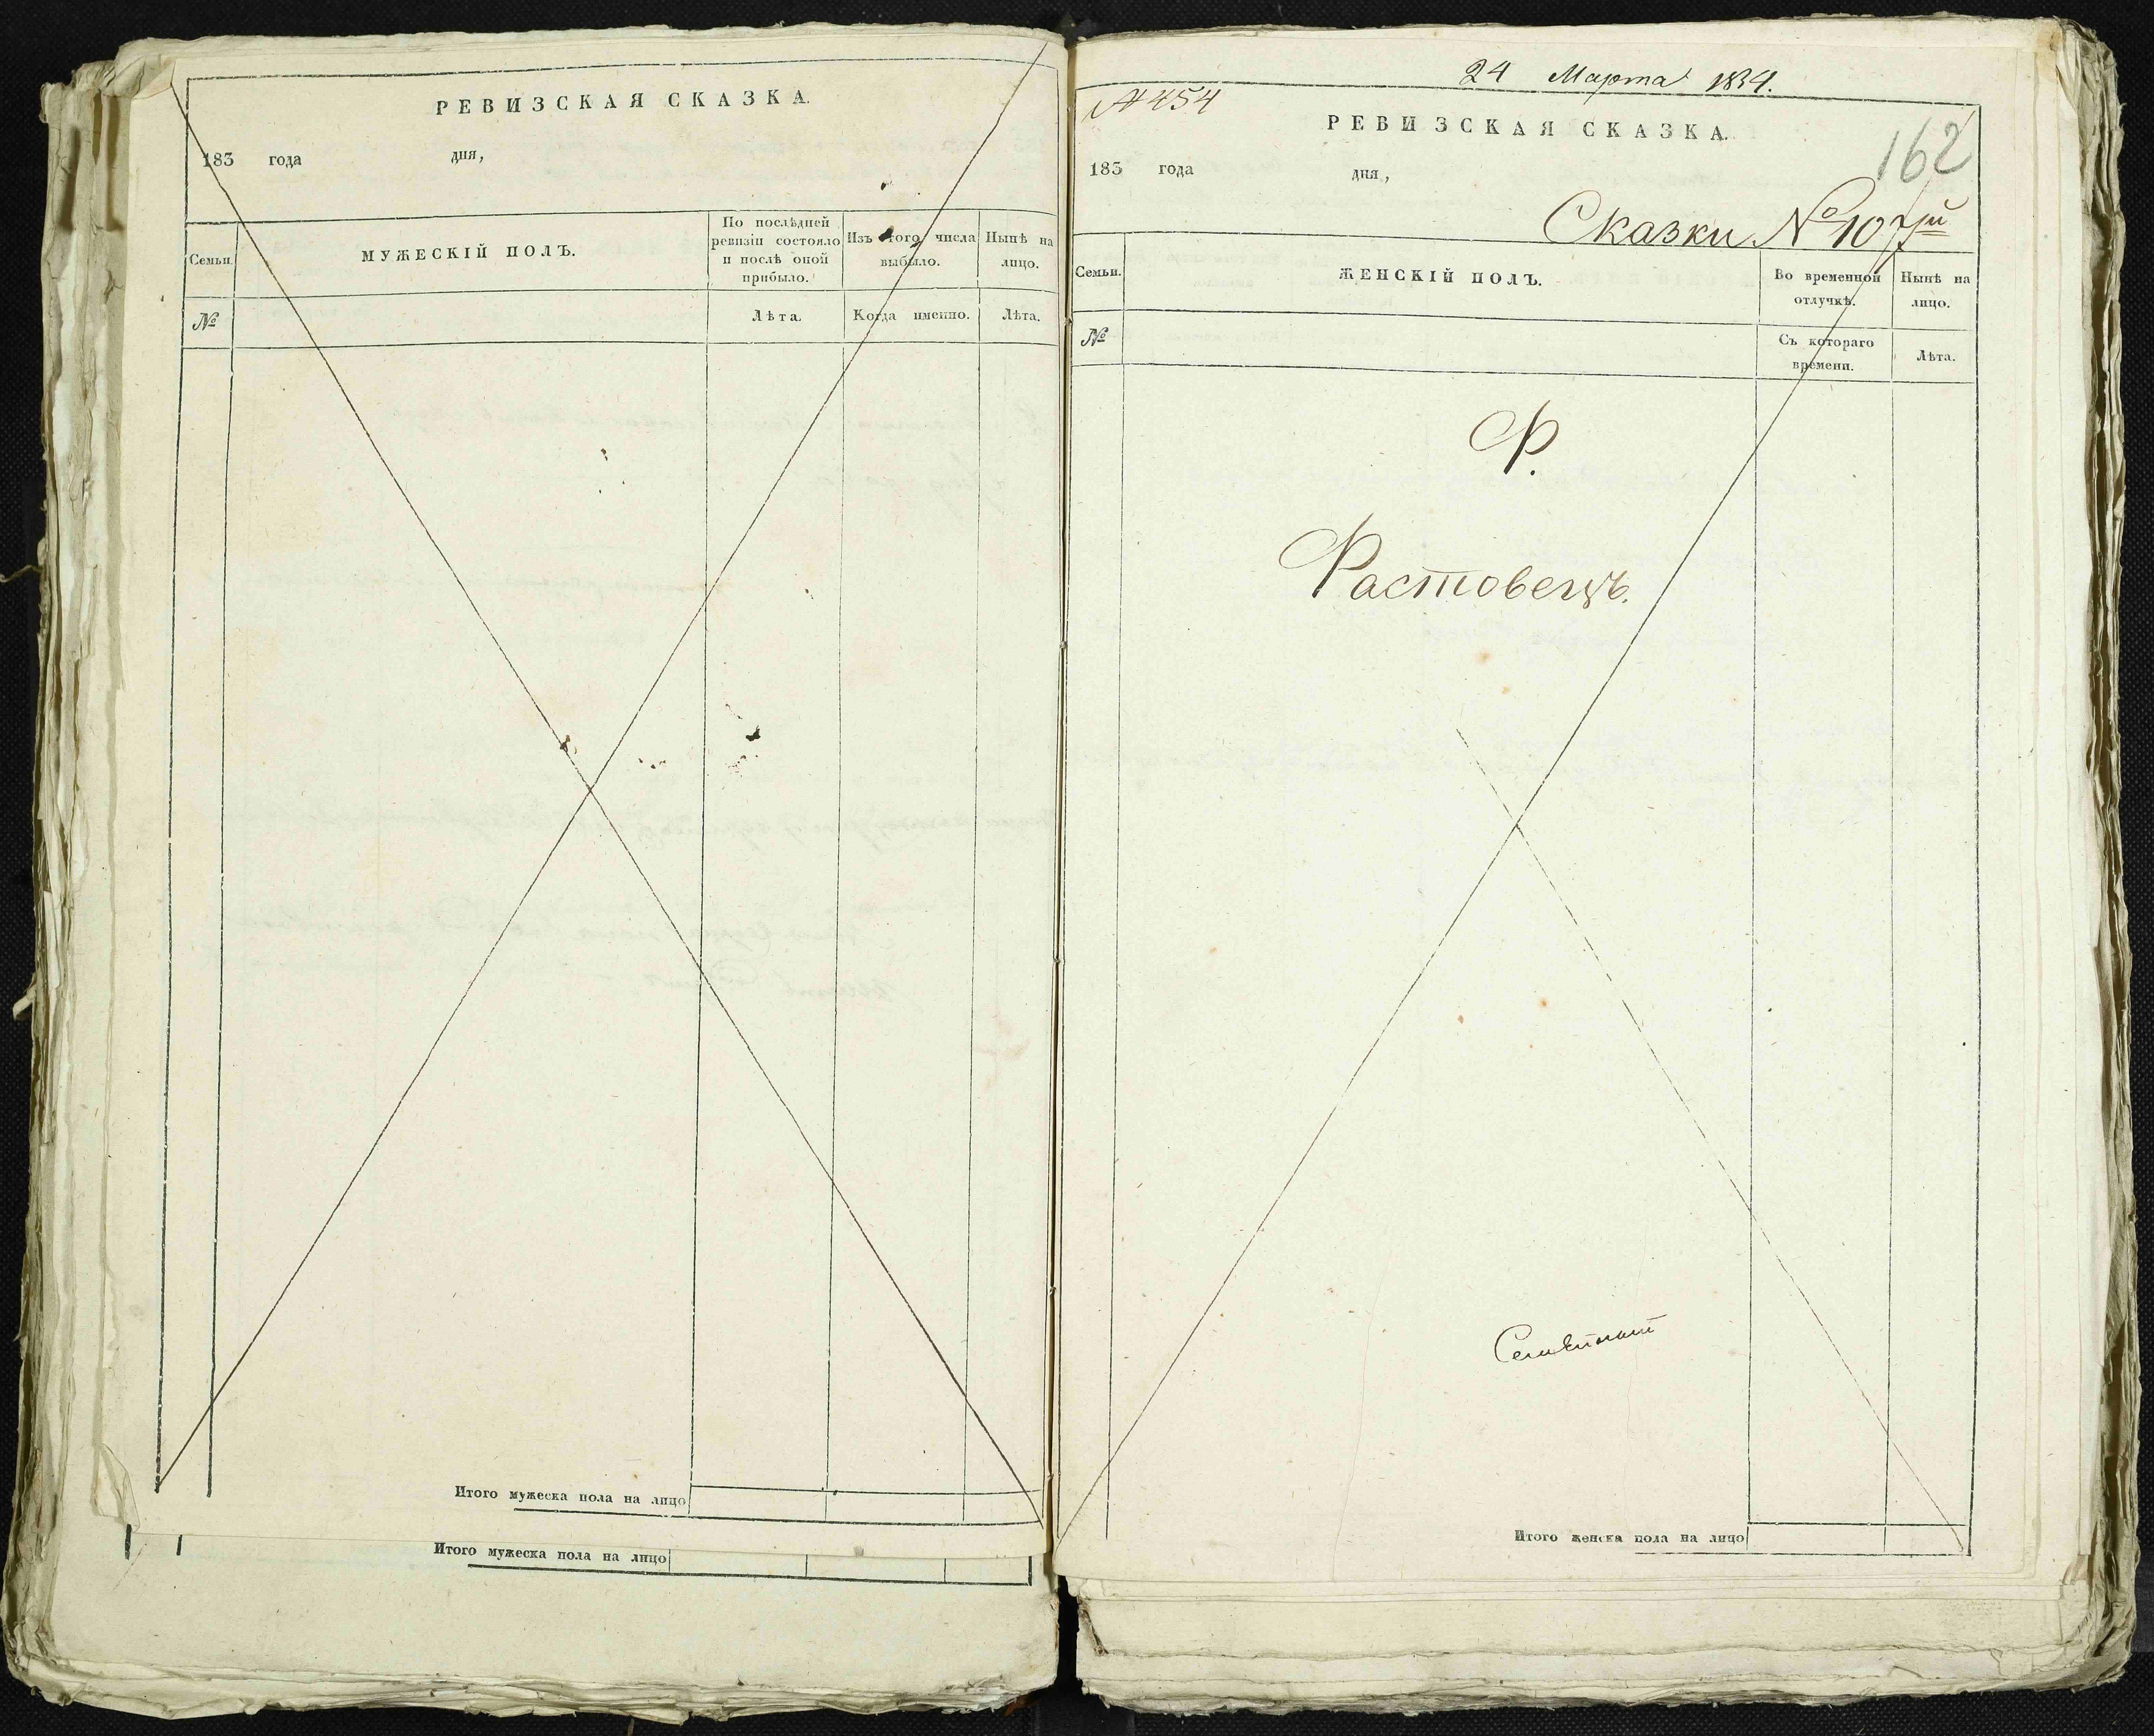 РЕВИЗСКАЯ СКАЗКА.
183 года дня,
Семьи.
МУЖЕСКІЙ ПОЛЪ.
По послѣдней ревизіи состояло и послѣ оной прибыло.
Изъ того числа выбыло.
Нынѣ на лицо.
№
Лѣта.
Когда именно.
Лѣта.
Итого мужеска пола на лицо
Итого мужеска пола на лицо
24 Марта 1834.
№ 454
РЕВИЗСКАЯ СКАЗКА.
162
183 года дня,
Сказки № 107й
Семьи.
ЖЕНСКІЙ ПОЛЪ.
Во временной отлучкѣ.
Нынѣ на лицо.
№
Съ котораго времени.
Лѣта.
Ф.
Фастовецъ.
Итого женска пола на лицо